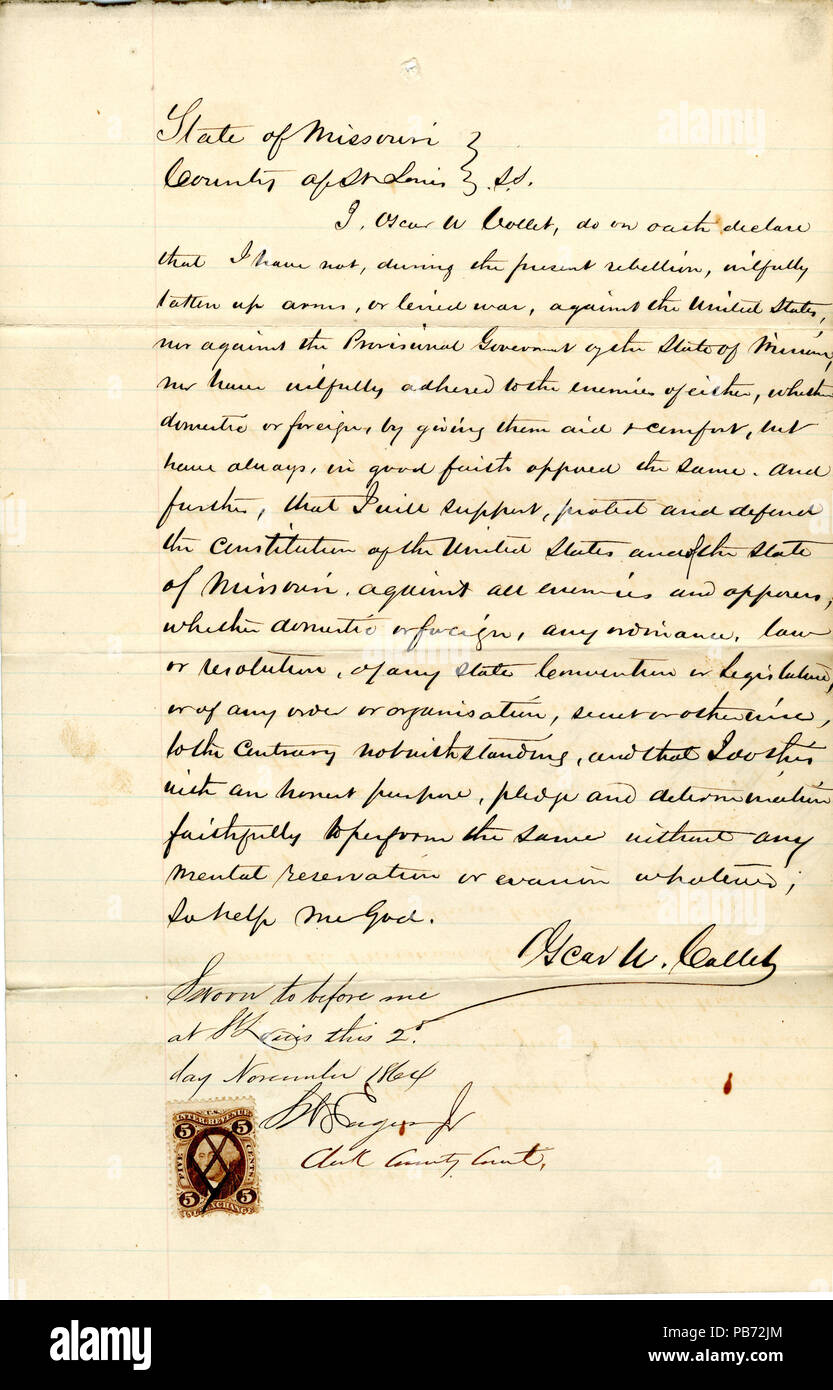 State of Missouri }
County of St Louis } S.S.
I, Oscar W Collet, do on oath declare
that I have not, during the present rebellion, wilfully
taken up arms, or levied war, against the United States,
nor against the Provisional Government of the State of Missouri,
nor have wilfully adhered to the enemies of either, whether
domestic or foreign, by giving them aid & comfort, but
have always, in good faith opposed the same. And
further, that I will support, protect and defend
the Constitution of the United States and of the State
of Missouri, against all enemies and opposers,
whether domestic or foreign, any ordinance, law
or resolution, of any State Convention or Legislature,
or of any order or organisation, secret or otherwise,
to the contrary notwithstanding, and that I do this
with an honest purpose, pledge and determination
faithfully to perform the same without any
mental reservation or evasion whatever;
So help me God.
Oscar W. Collet
Sworn to before me
at St Louis this 2d
day November 1864
Jr
Clerk County Court.
U.S.
INTER. REVENUE
5 5
FIVE CENTS
5 5
EXCHANGE
alamy
a
alamy
Image ID: PB72JM
www.alamy.com